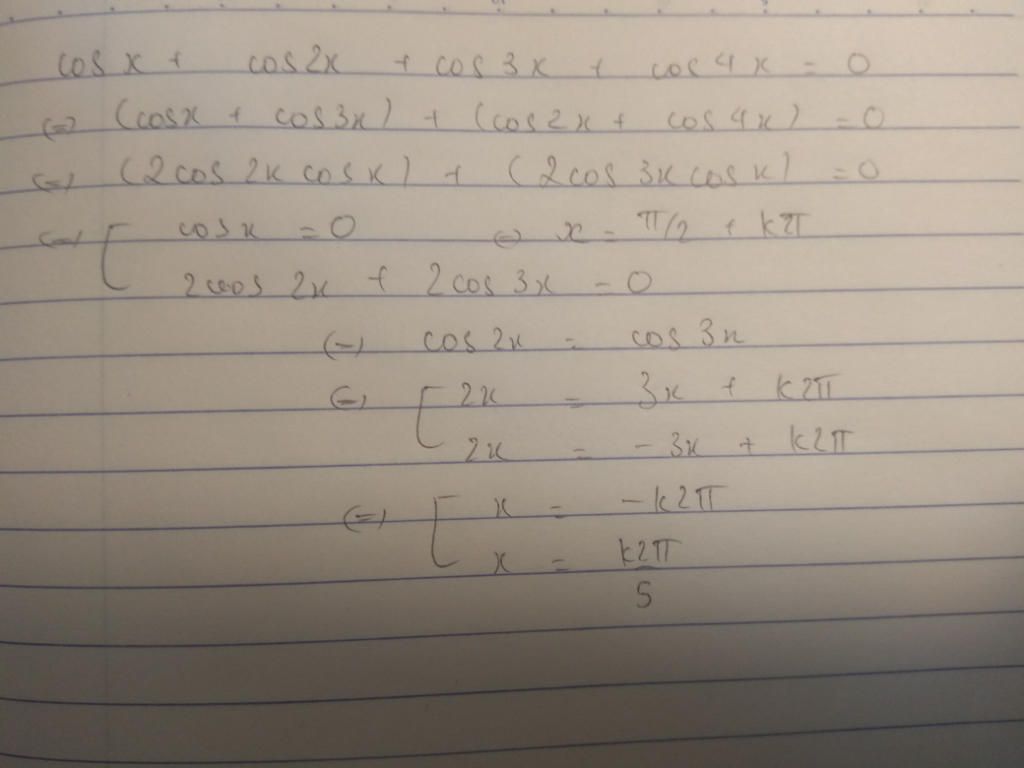 cos x + cos2x + cos 3x + cos 4x = 0
⇔ (cosx + cos3x) + (cos2x + cos4x) = 0
⇔ (2cos 2x cos x) + (2cos 3x cos x) = 0
⇔ [ cosx = 0 ⇔ x = π/2 + k2π
2cos 2x + 2cos 3x = 0
⇔ cos2x = cos 3x
⇔ [ 2x = 3x + k2π
2x = -3x + k2π
⇔ [ x = -k2π
x = k2π
5